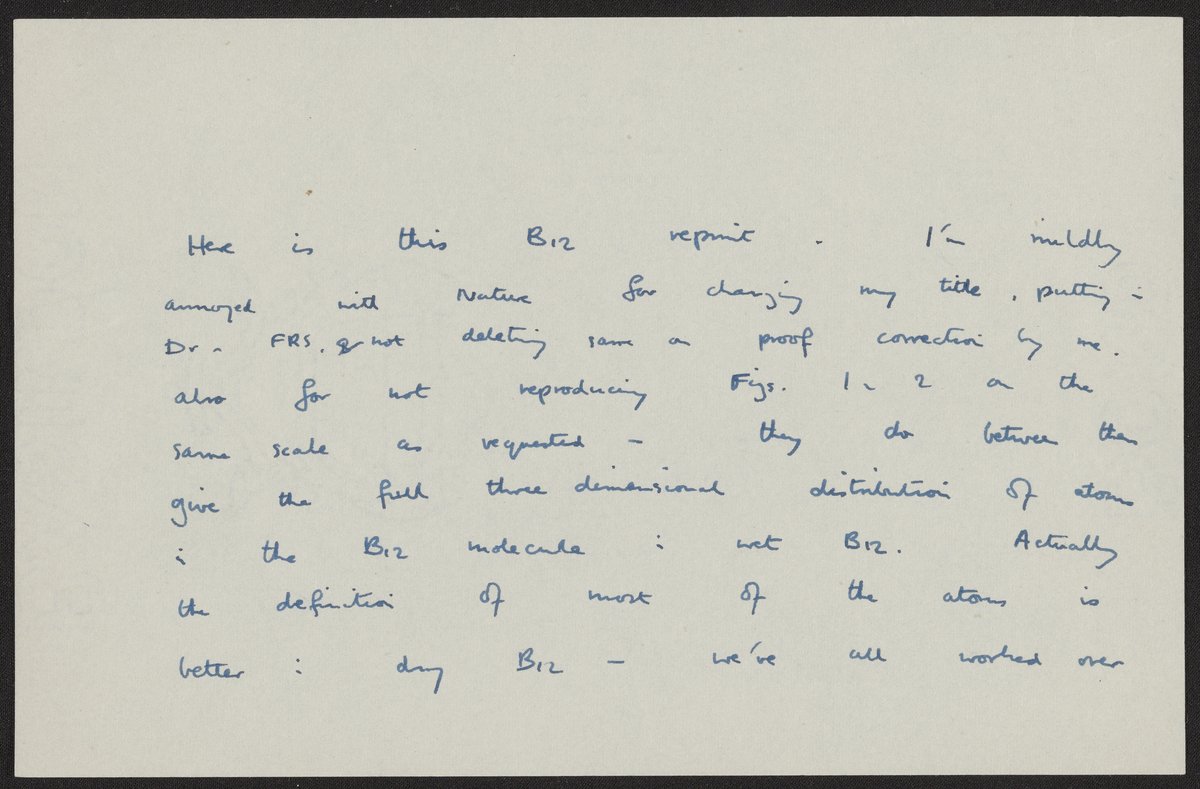 Here is this B12 reprint. I'm mildly
annoyed with Nature for changing my title, putting in
Dr. FRS, & not deleting same on proof correction by me.
also for not reproducing Figs. 1 & 2 on the
same scale as requested — they do between them
give the full three dimensional distribution of atoms
in the B12 molecule in wet B12. Actually
the definition of most of the atoms is
better in dry B12 — we've all worked over